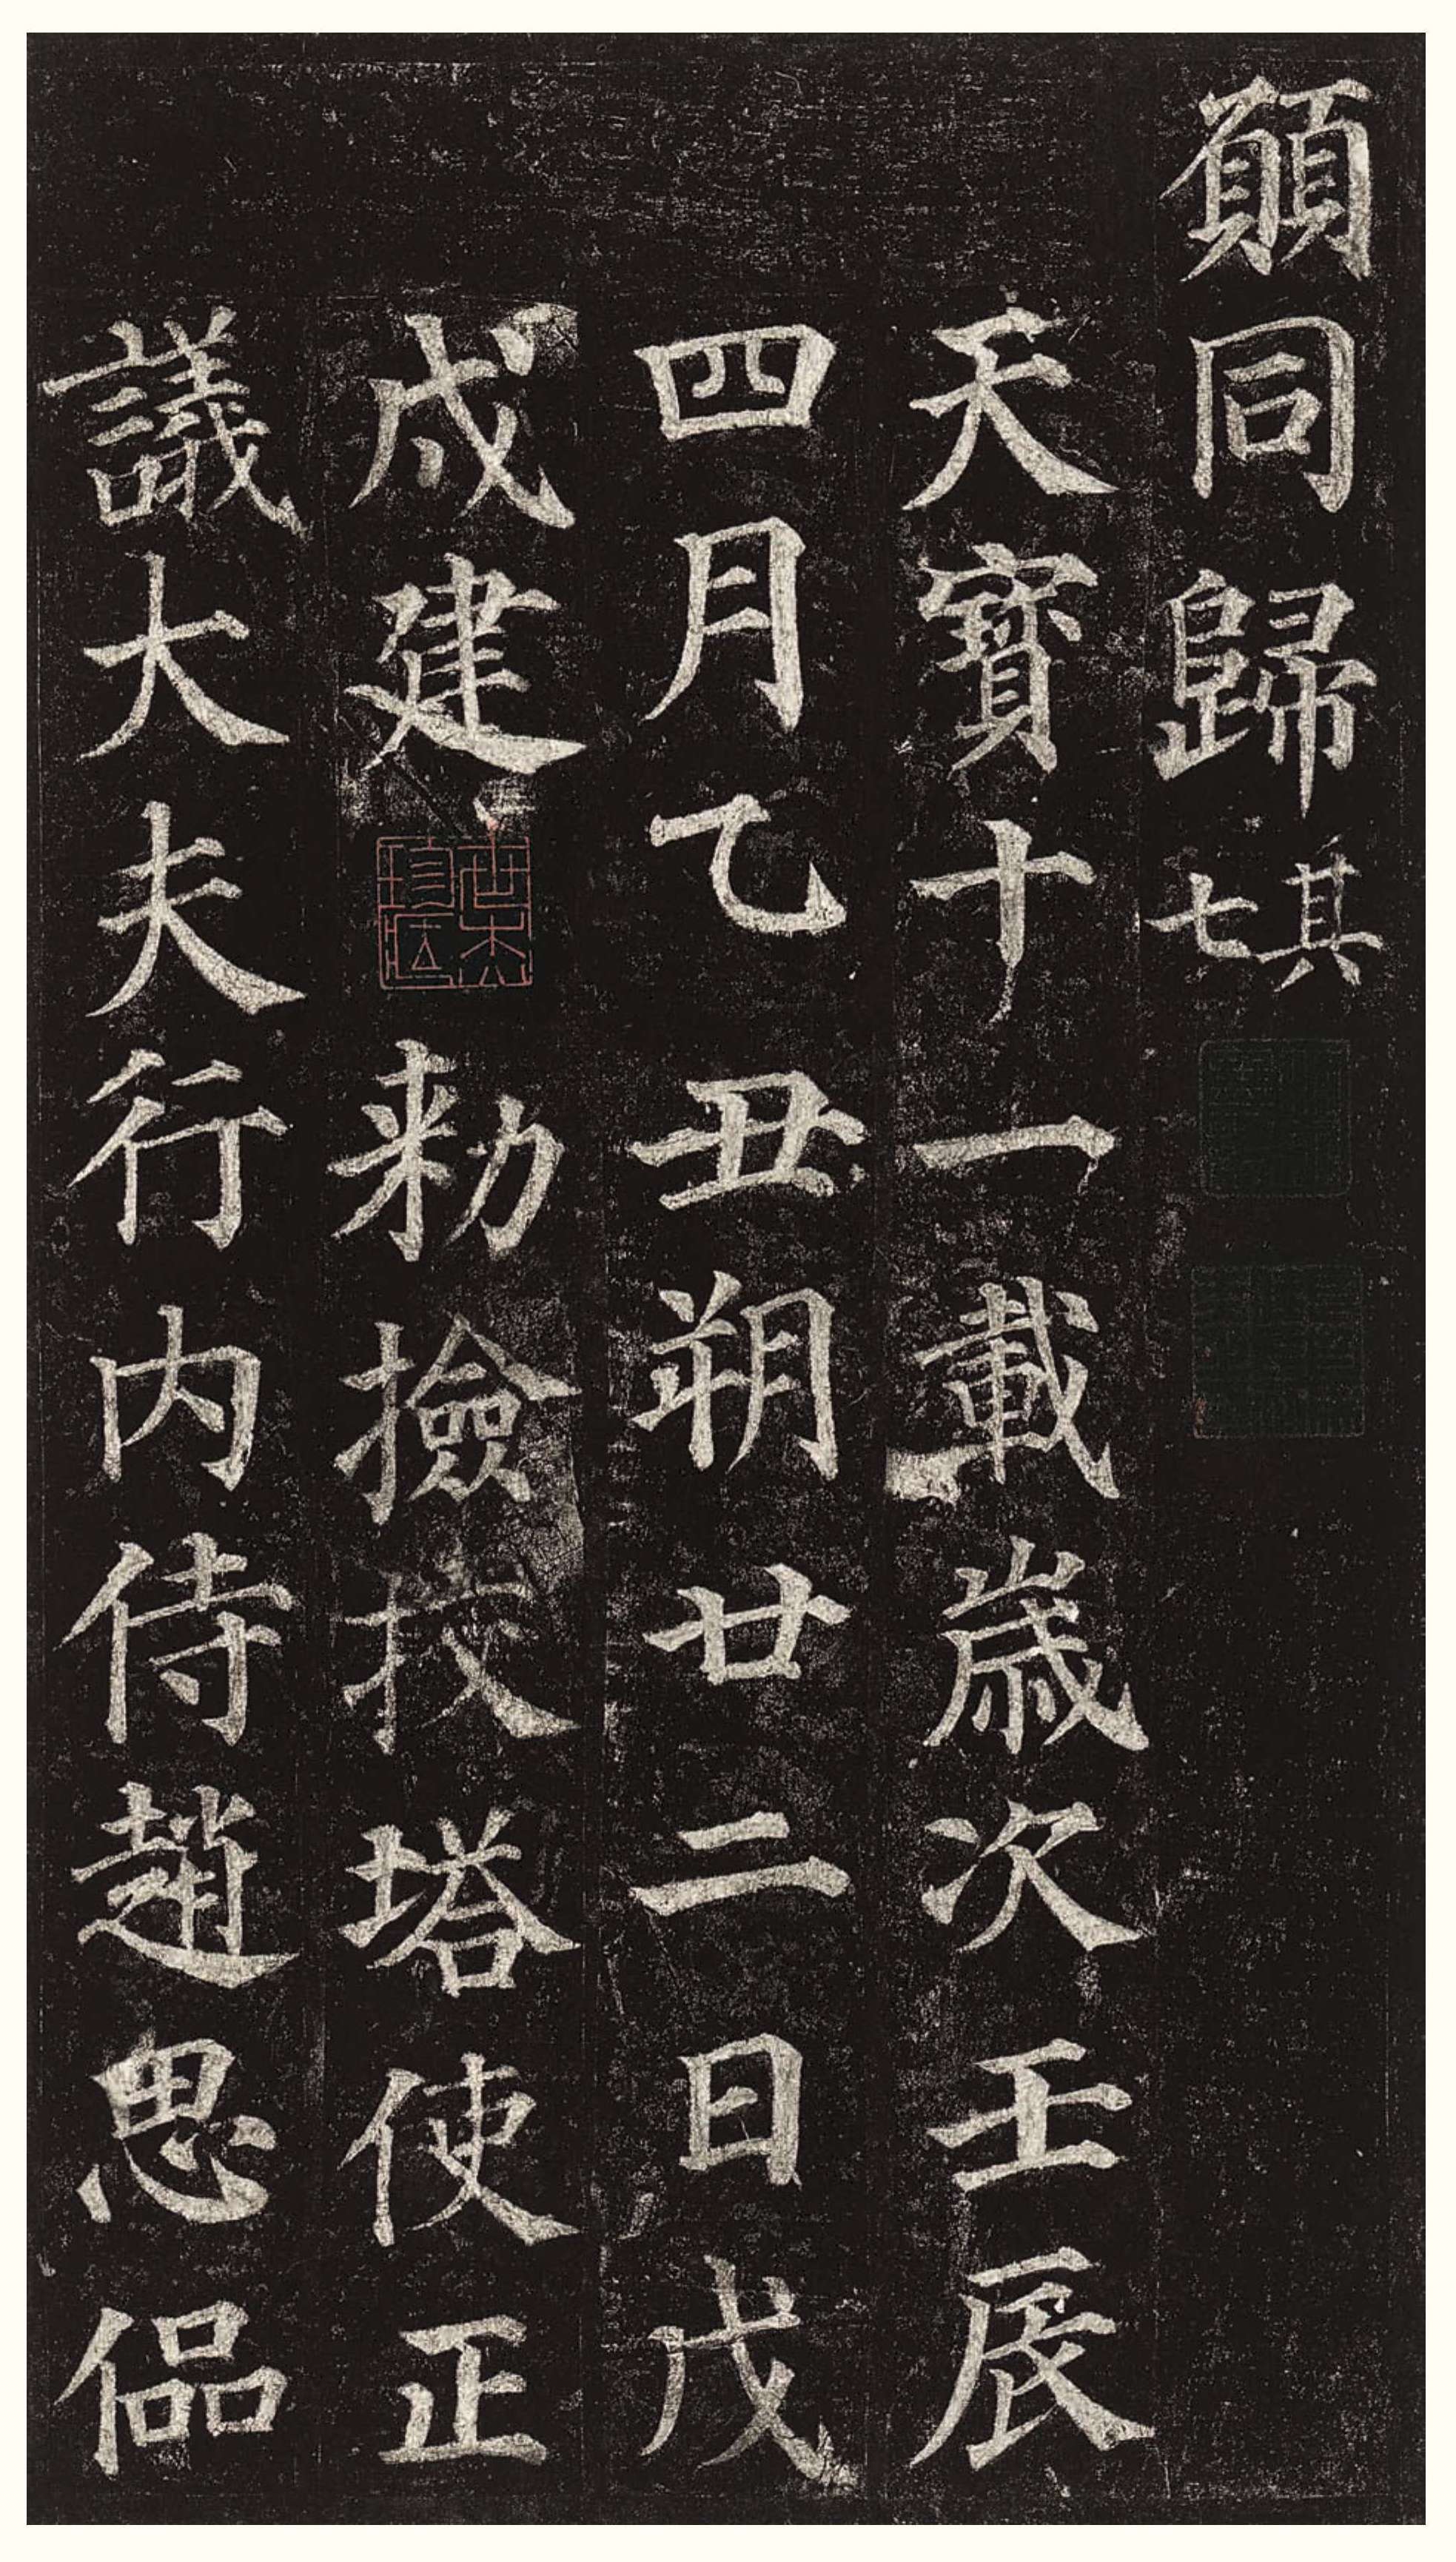 願同歸其七
天寶十一載歲次壬辰
四月乙丑朔廿二日戊
戌建 勅撿挍塔使正
議大夫行内侍趙思侣